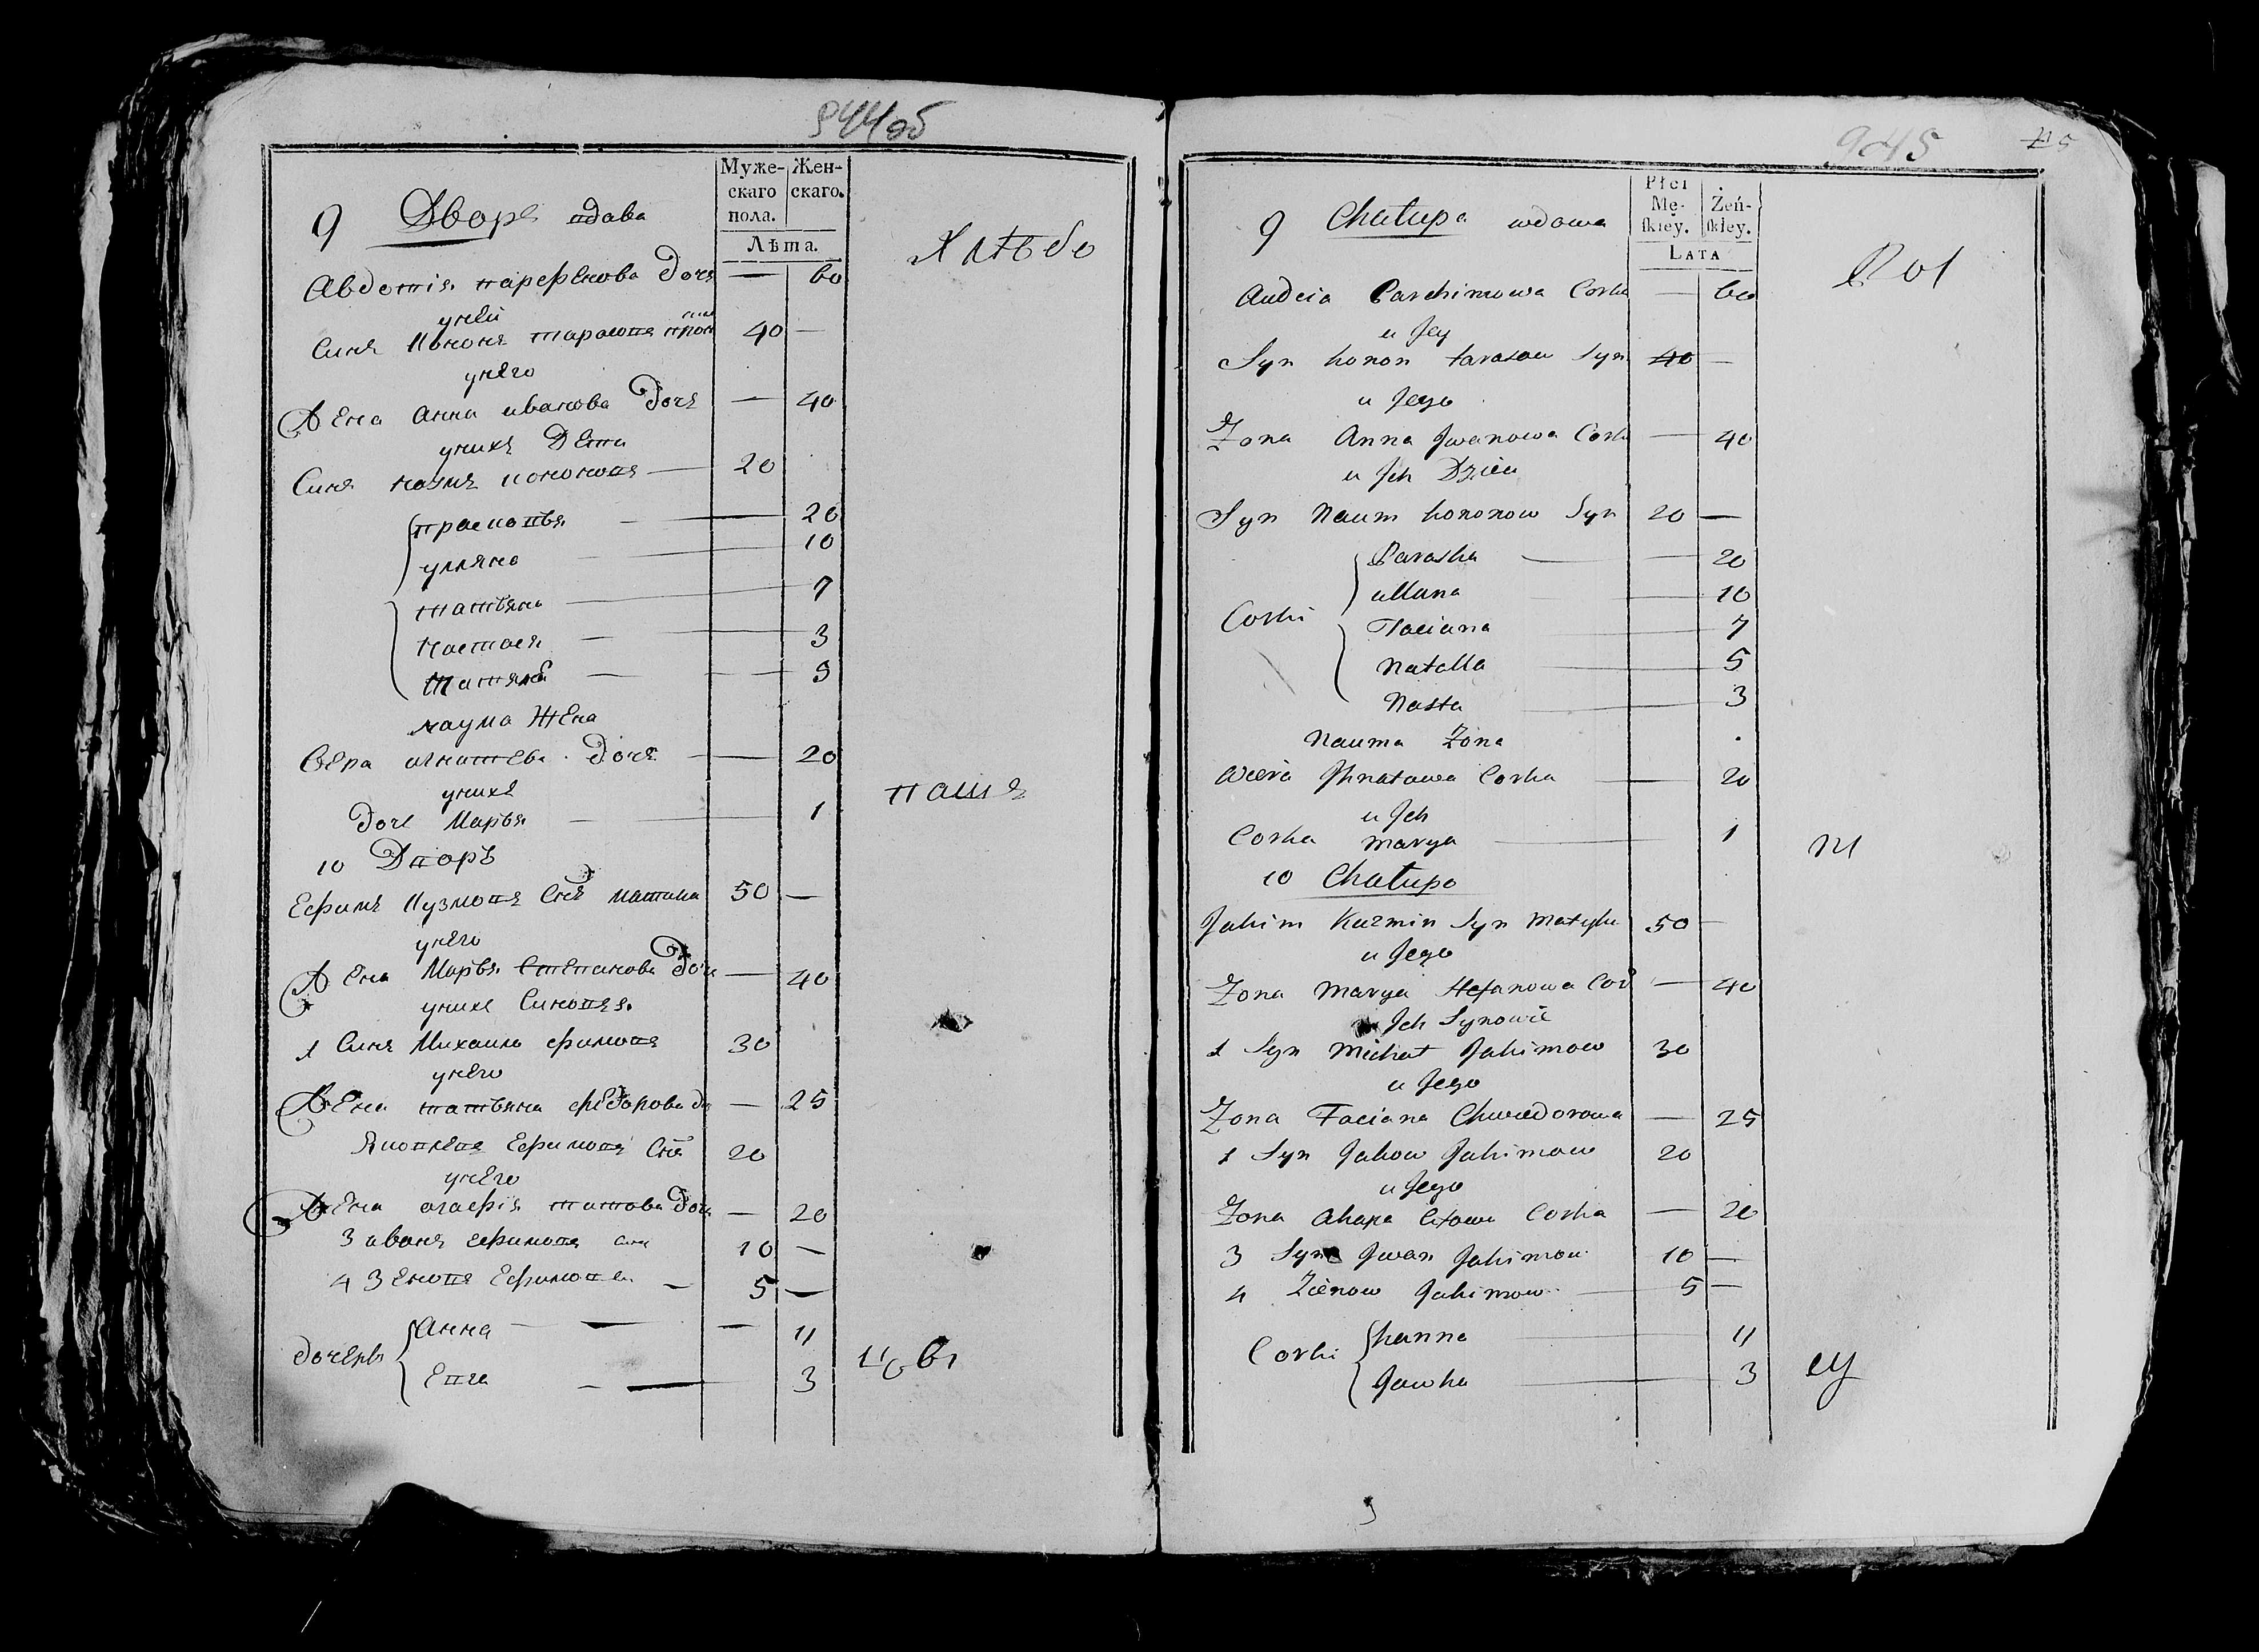 944об
Муже- Жен-
скаго скаго.
пола.
Лѣта.
9 Дворъ вдова
Хлѣбо
Авдотія парфенова дочь — 60
унеи
Синъ Кононъ тарасовъ 40 —
унего
Жена Анна иванова дочь — 40
унихъ Дети
Синъ наумъ кононовъ — 20
прасковья — 20
уляна — 10
татьяна — 7
Настася — 3
наума Жена
Вера игнатева дочь — 20
унихъ
пашъ
дочь Марья — 1
10 Дворъ
Ефимъ Кузмовъ Снъ матика 50 —
унего
Жена Марья Степанова дочь — 40
унихъ Синовья
1 Синъ Михаило ефимовъ 30
унего
Жена татьяна федорова до — 25
Яковъ Ефимовъ Снъ 20
унего
Жена агафія титова дочь — 20
3 иванъ ефимовъ синъ 10 —
4 Зеновъ Ефимовъ — 5 —
дочерѣ Анна — 11
Евга — 3
945
Płci
Mę- Żeń-
ſkiey. ſkiey.
LATA
9 Chałupa wdowa
Rol
Audcia Parchimowa Corka — 60
u Jey
Syn konon tarasow Syn 40 —
u Jego
Zona Anna Jwanowa Cork — 40
u Jch Dzieci
Syn Naum kononow Syn 20 —
Paraska — 20
ullana — 10
Corki
Taciana — 7
Natalla — 5
Nasta — 3
Nauma Zona
Wiera Jhnatowa Corka — 20
u Jch
Corka Marya — 1
10 Chałupa
Jakim Kuzmin Syn Matyka 50 —
u Jego
Zona Marya Stefanowa Cor — 40
Jch Synowie
1 Syn Michał Jakimow 30
u Jego
Zona Taciana Chwiedorowa — 25
1 Syn Jakow Jakimow 20
u Jego
Zona Ahapa Citowa Corka — 20
3 Syn Jwan Jakimow 10 —
4 Zienow Jakimow — 5 —
Corki hanna — 11
Jawka — 3